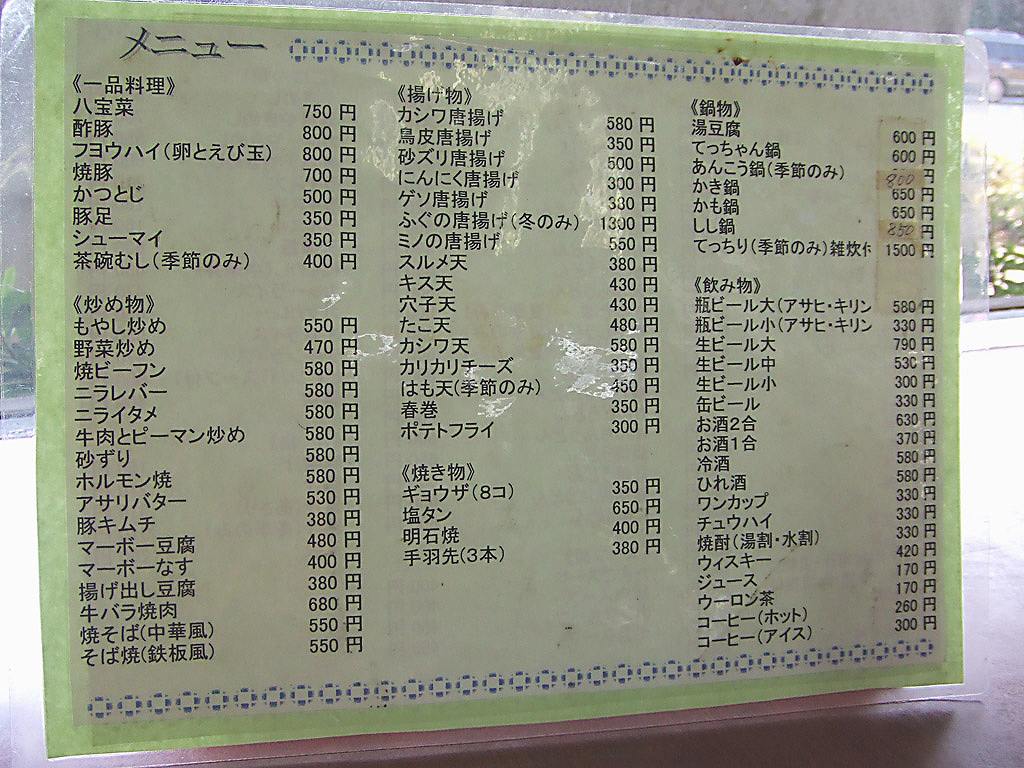 メニュー
《一品料理》
八宝菜 750 円
酢豚 800 円
フヨウハイ(卵とえび玉) 800 円
焼豚 700 円
かつとじ 500 円
豚足 350 円
シューマイ 350 円
茶碗むし(季節のみ) 400 円
《炒め物》
もやし炒め 550 円
野菜炒め 470 円
焼ビーフン 580 円
ニラレバー 580 円
ニライタメ 580 円
牛肉とピーマン炒め 580 円
砂ずり 580 円
ホルモン焼 580 円
アサリバター 530 円
豚キムチ 380 円
マーボー豆腐 480 円
マーボーなす 400 円
揚げ出し豆腐 380 円
牛バラ焼肉 680 円
焼そば(中華風) 550 円
そば焼(鉄板風) 550 円
《揚げ物》
カシワ唐揚げ 580 円
鳥皮唐揚げ 350 円
砂ズリ唐揚げ 500 円
にんにく唐揚げ 300 円
ゲソ唐揚げ 380 円
ふぐの唐揚げ(冬のみ) 1300 円
ミノの唐揚げ 550 円
スルメ天 380 円
キス天 430 円
穴子天 430 円
たこ天 480 円
カシワ天 580 円
カリカリチーズ 350 円
はも天(季節のみ) 450 円
春巻 350 円
ポテトフライ 300 円
《焼き物》
ギョウザ(8コ) 350 円
塩タン 650 円
明石焼 400 円
手羽先(3本) 380 円
《鍋物》
湯豆腐 600 円
てっちゃん鍋 600 円
あんこう鍋(季節のみ) 800 円
かき鍋 650 円
かも鍋 650 円
しし鍋 850 円
てっちり(季節のみ)雑炊付 1500 円
《飲み物》
瓶ビール大(アサヒ・キリン 580 円
瓶ビール小(アサヒ・キリン 330 円
生ビール大 790 円
生ビール中 530 円
生ビール小 300 円
缶ビール 330 円
お酒2合 630 円
お酒1合 370 円
冷酒 580 円
ひれ酒 580 円
ワンカップ 330 円
チュウハイ 330 円
焼酎(湯割・水割) 330 円
ウィスキー 420 円
ジュース 170 円
ウーロン茶 170 円
コーヒー(ホット) 260 円
コーヒー(アイス) 300 円